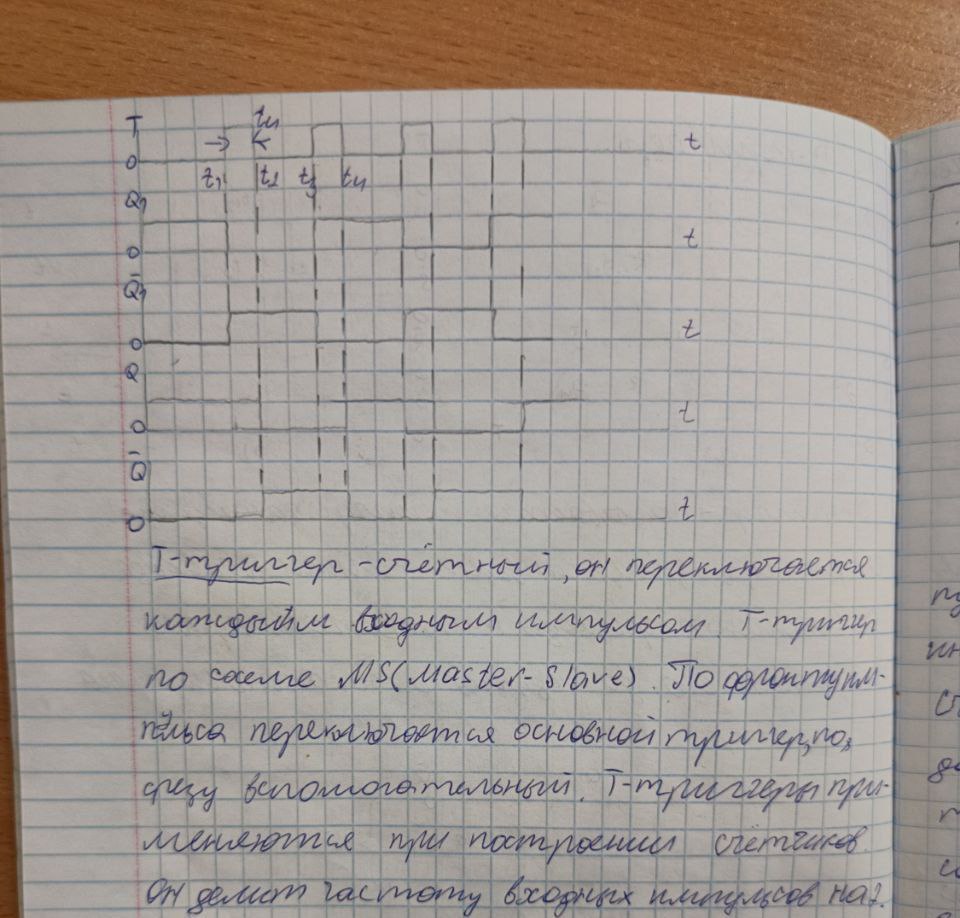 T
tи
0
t
t₁ t₂ t₃ t₄
Q₁
0
t
Q̄₁
0
t
Q
0
t
Q̄
0
t
Т-триггер -счётный, он переключается
каждыйм входным импульсом. Т-триггер
по схеме MS(Master-Slave). По фронту им-
пульса переключается основной триггер, по
срезу вспомогательный. Т-триггеры при-
меняются при построении счётчиков.
Он делит частоту входных импульсов на 2.